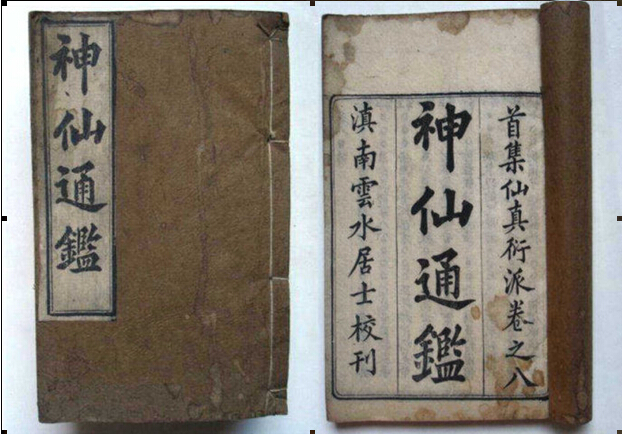 神仙通鑑
首集仙真衍派卷之八
神仙通鑑
滇南雲水居士校刊